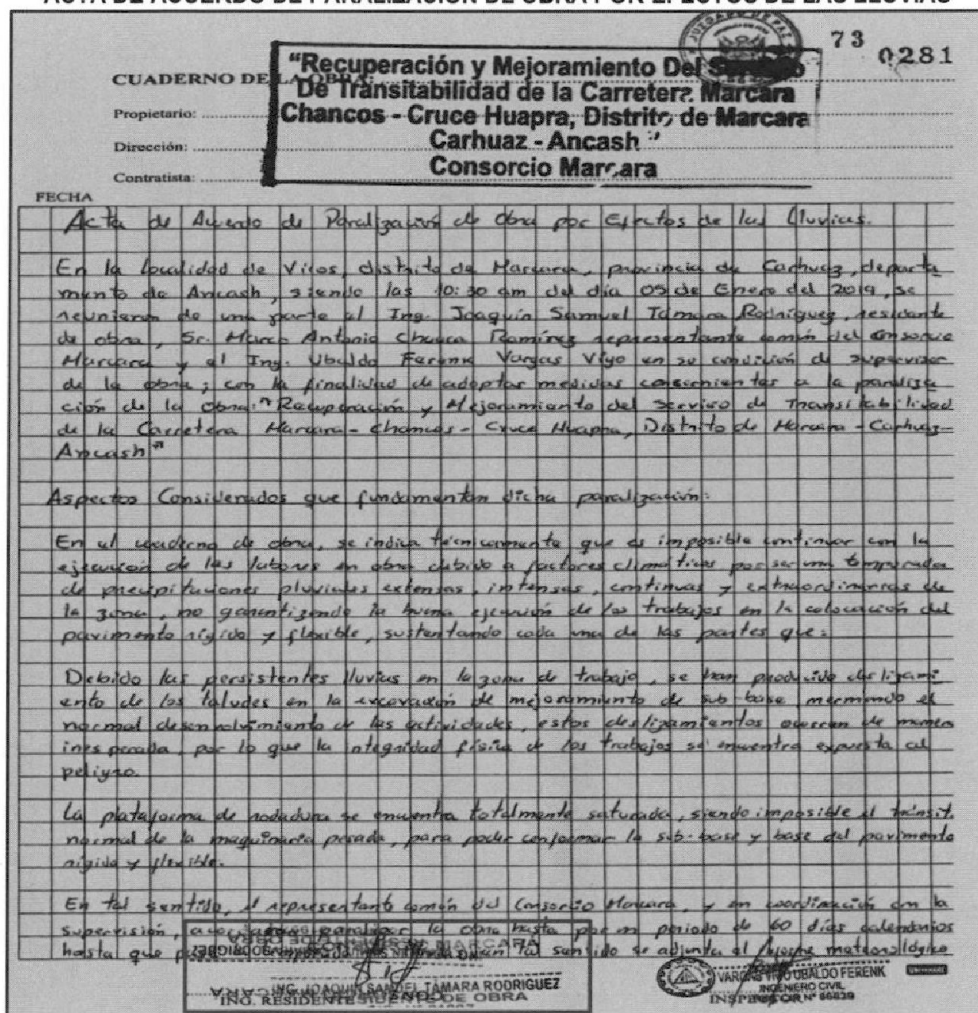 ACTA DE ACUERDO DE PARALIZACIÓN DE OBRA POR EFECTOS DE LAS LLUVIAS
JUZGADO DE PAZ
73
0281
CUADERNO DE LA OBRA:
"Recuperación y Mejoramiento Del
De Transitabilidad de la Carretera Marcara
Chancos - Cruce Huapra, Distrito de Marcara
Carhuaz - Ancash"
Consorcio Marcara
Propietario:
Dirección:
Contratista:
FECHA
Acta de Acuerdo de Paralización de Obra por Efectos de las lluvias.
En la localidad de Vicos, distrito de Marcara, provincia de Carhuaz, departa
mento de Ancash, siendo las 10:30 am del día 05 de Enero del 2019, se
reunieron de una parte el Ing. Joaquín Samuel Támara Rodríguez, residente
de obra, Sr. Marco Antonio Ramírez representante común del consorcio
Marcara y el Ing. Ubaldo Ferenk Vargas en su condición de supervisor
de la obra; con la finalidad de adoptar medidas concernientes a la paraliza
ción de la obra: "Recuperación y Mejoramiento del Servicio de Transitabilidad
de la Carretera Marcara - Chancos - Cruce Huapra, Distrito de Marcara - Carhuaz-
Ancash"
Aspectos Considerados que fundamentan dicha paralización:
En el cuaderno de obra, se indica técnicamente que es imposible continuar con la
ejecución de las labores en obra debido a factores climáticos por ser una temporada
de precipitaciones pluviales extensas, intensas, continuas y extraordinarias de
la zona, no garantizando la buena ejecución de los trabajos en la colocación del
pavimento rígido y flexible, sustentando cada una de las partes que:
Debido las persistentes lluvias en la zona de trabajo, se han producido deslizami
ento de los taludes en la excavación de mejoramiento de sub base mermando el
normal desenvolvimiento de las actividades, estos deslizamientos ocurren de manera
inesperada, por lo que la integridad física de los trabajos se encuentra expuesta al
peligro.
La plataforma de rodadura se encuentra totalmente saturada, siendo imposible el tránsit.
normal de la maquinaria pesada, para poder conformar la sub-base y base del pavimento
rígido y flexible.
En tal sentido, el representante común del Consorcio Marcara, y en coordinación con la
supervisión, paralizar la obra hasta por un periodo de 60 días calendarios
hasta que tal sentido se adjunta el informe meteorológico
ING. JOAQUIN SAMUEL TAMARA RODRIGUEZ
ING. RESIDENTE DE OBRA
UBALDO FERENK
INGENIERO CIVIL